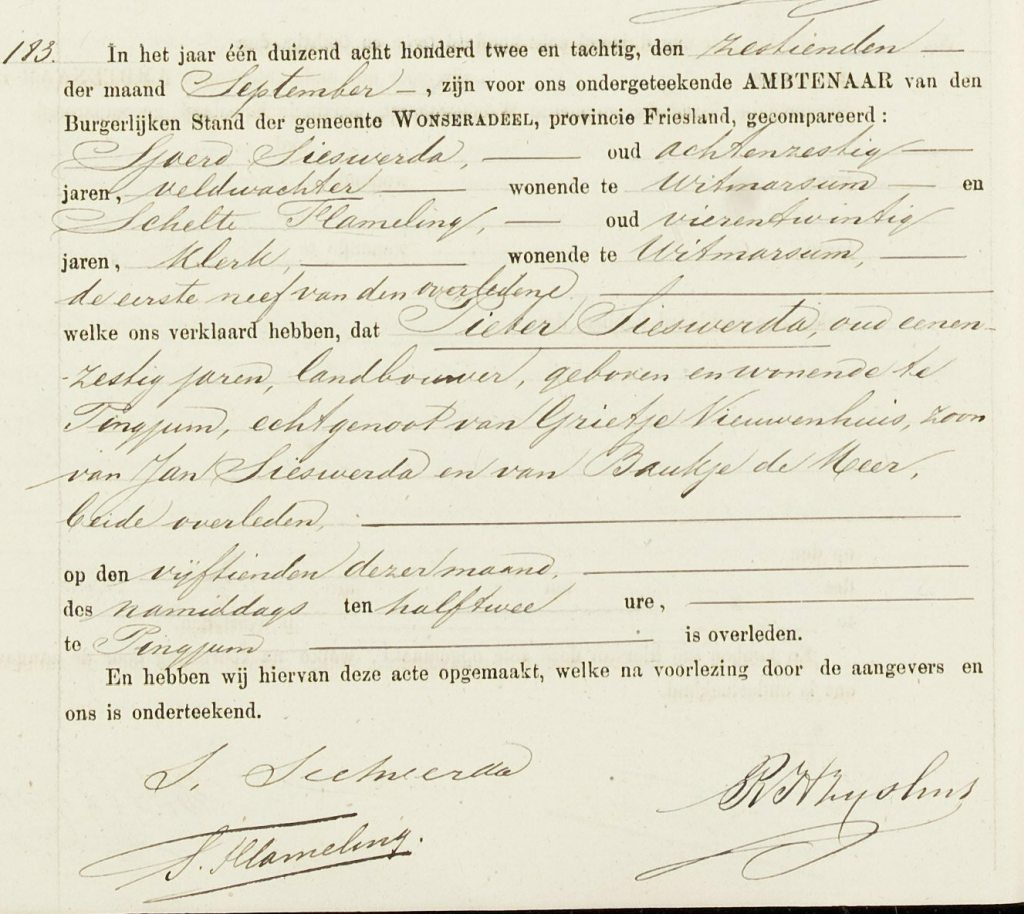 183. In het jaar één duizend acht honderd twee en tachtig, den zestienden
der maand September, zijn voor ons ondergeteekende AMBTENAAR van den
Burgerlijken Stand der gemeente WONSERADEEL, provincie Friesland, gecompareerd:
Sjoerd Sieswerda, oud achtenzestig
jaren, veldwachter wonende te Witmarsum en
Schelte Flameling, oud vierentwintig
jaren, klerk, wonende te Witmarsum,
de eerste neef van den overledene
welke ons verklaard hebben, dat Pieter Sieswerda, oud eenen-
zestig jaren, landbouwer, geboren en wonende te
Pingjum, echtgenoot van Grietje Nieuwenhuis, zoon
van Jan Sieswerda en van Baukje de Meer,
beide overleden,
op den vijftienden dezer maand,
des namiddags ten half twee ure,
te Pingjum is overleden.
En hebben wij hiervan deze acte opgemaakt, welke na voorlezing door de aangevers en
ons is onderteekend.
S. Sieswerda
S. Flameling.